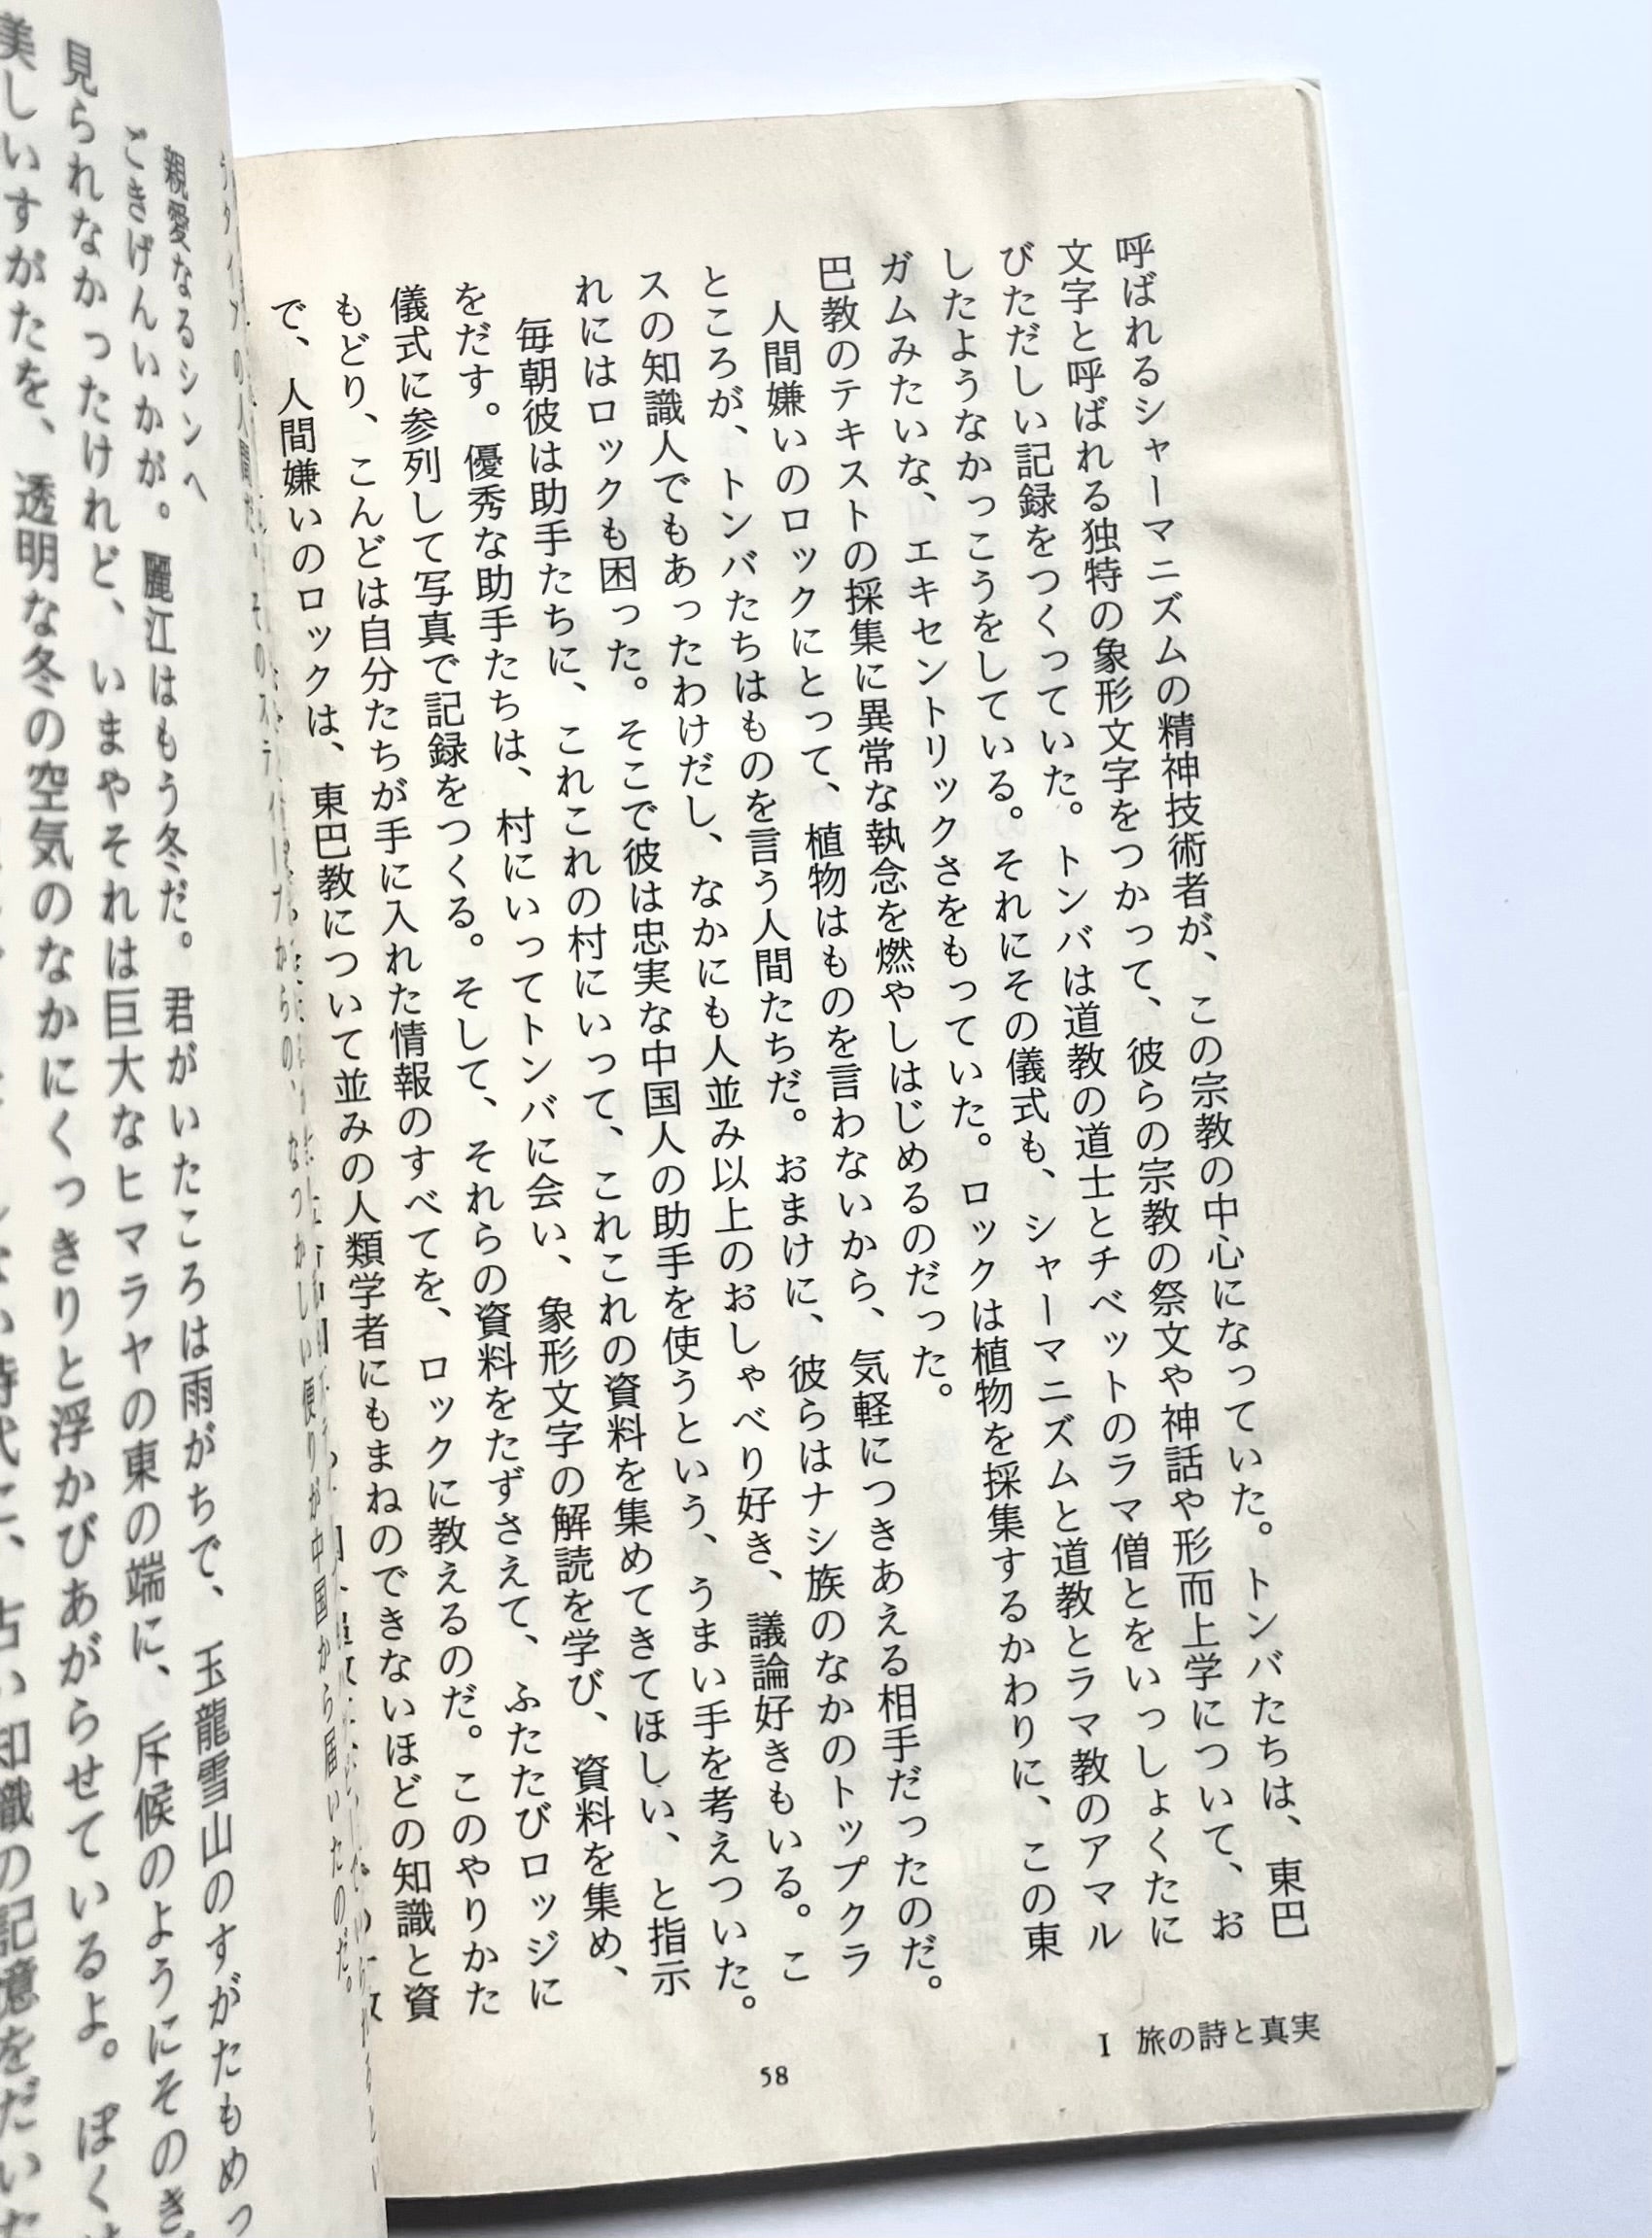 呼ばれるシャーマニズムの精神技術者が、この宗教の中心になっていた。トンバたちは、東巴
文字と呼ばれる独特の象形文字をつかって、彼らの宗教の祭文や神話や形而上学について、お
びただしい記録をつくっていた。トンバは道教の道士とチベットのラマ僧とをいっしょくたに
したようなかっこうをしている。それにその儀式も、シャーマニズムと道教とラマ教のアマル
ガムみたいな、エキセントリックさをもっていた。ロックは植物を採集するかわりに、この東
巴教のテキストの採集に異常な執念を燃やしはじめるのだった。
人間嫌いのロックにとって、植物はものを言わないから、気軽につきあえる相手だったのだ。
ところが、トンバたちはものを言う人間たちだ。おまけに、彼らはナシ族のなかのトップクラ
スの知識人でもあったわけだし、なかにも人並み以上のおしゃべり好き、議論好きもいる。こ
れにはロックも困った。そこで彼は忠実な中国人の助手を使うという、うまい手を考えついた。
毎朝彼は助手たちに、これこれの村にいって、これこれの資料を集めてきてほしい、と指示
をだす。優秀な助手たちは、村にいってトンバに会い、象形文字の解読を学び、資料を集め、
儀式に参列して写真で記録をつくる。そして、それらの資料をたずさえて、ふたたびロッジに
もどり、こんどは自分たちが手に入れた情報のすべてを、ロックに教えるのだ。このやりかた
で、人間嫌いのロックは、東巴教について並みの人類学者にもまねのできないほどの知識と資
I 旅の詩と真実
58
なつかしい便りが中国から届いたのだ。
親愛なるシンへ
ごきげんいかが。麗江はもう冬だ。君がいたころは雨がちで、玉龍雪山のすがたもめっ
見られなかったけれど、いまやそれは巨大なヒマラヤの東の端に、斥候のようにそのき
美しいすがたを、透明な冬の空気のなかにくっきりと浮かびあがらせているよ。ぼく
時代に、古い知識の記憶をだいた